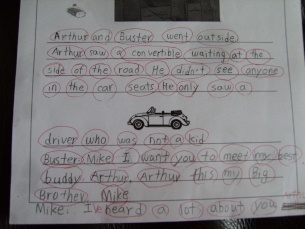 Arthur and Buster went outside
Arthur saw a convertible waiting at the
side of the road He didn't see anyone
in the car seats He only saw a
driver who was not a kid
Buster Mike I want you to meet my best
buddy Arthur, Arthur this my Big
Brother Mike
Mike. I heard a lot about you